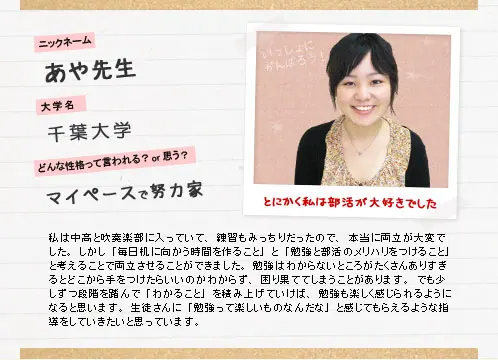 ニックネーム
あや先生
大学名
千葉大学
どんな性格って言われる？or思う？
マイペースで努力家
いっしょに
がんばろう！
とにかく私は部活が大好きでした
私は中高と吹奏楽部に入っていて、練習もみっちりだったので、本当に両立が大変で
した。しかし「毎日机に向かう時間を作ること」と「勉強と部活のメリハリをつけること」
と考えることで両立させることができました。勉強はわからないところがたくさんありすぎ
るとどこから手をつけたらいいのかわからず、困り果ててしまうことがあります。でも少
しずつ段階を踏んで「わかること」を積み上げていけば、勉強も楽しく感じられるように
なると思います。生徒さんに「勉強って楽しいものなんだな」と感じてもらえるような指
導をしていきたいと思っています。